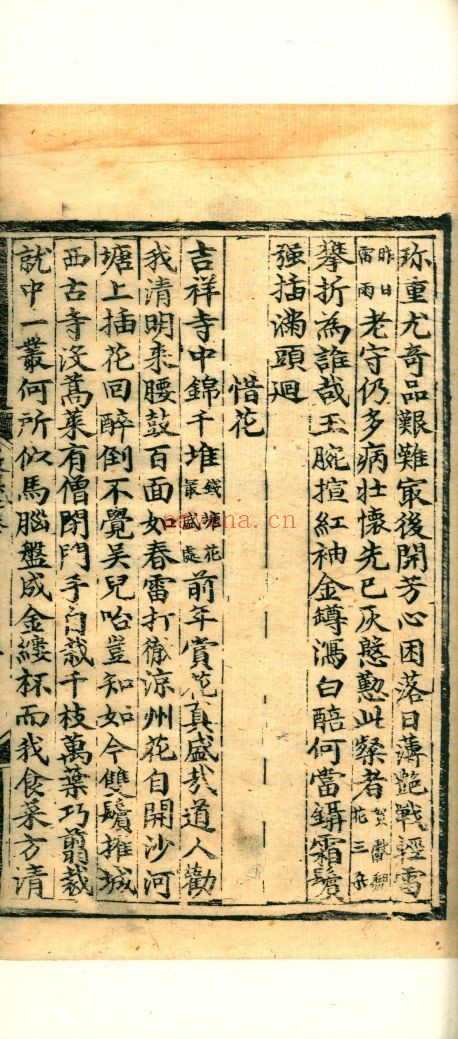 珎重尤奇品艱難㝡後開芳心困落日薄艶戰輕雷
昨日雷雨老守仍多病壯懷先已灰慇懃此粲者花三朵
攀折為誰哉玉腕揎紅袖金鐏瀉白醅何當鑷霜鬢
强插滿頭廻
惜花
吉祥寺中錦千堆錢塘花㝡盛處前年賞花真盛㦲道人勸
我清明来腰鼓百面如春雷打徹涼州花自開沙河
塘上插花回醉倒不覺吳兒咍豈知如今雙鬢摧城
西古寺没蒿萊有僧閉門手自栽千枝萬葉巧翦裁
就中一叢何所似馬腦盤盛金縷杯而我食菜方清
nayona.cn